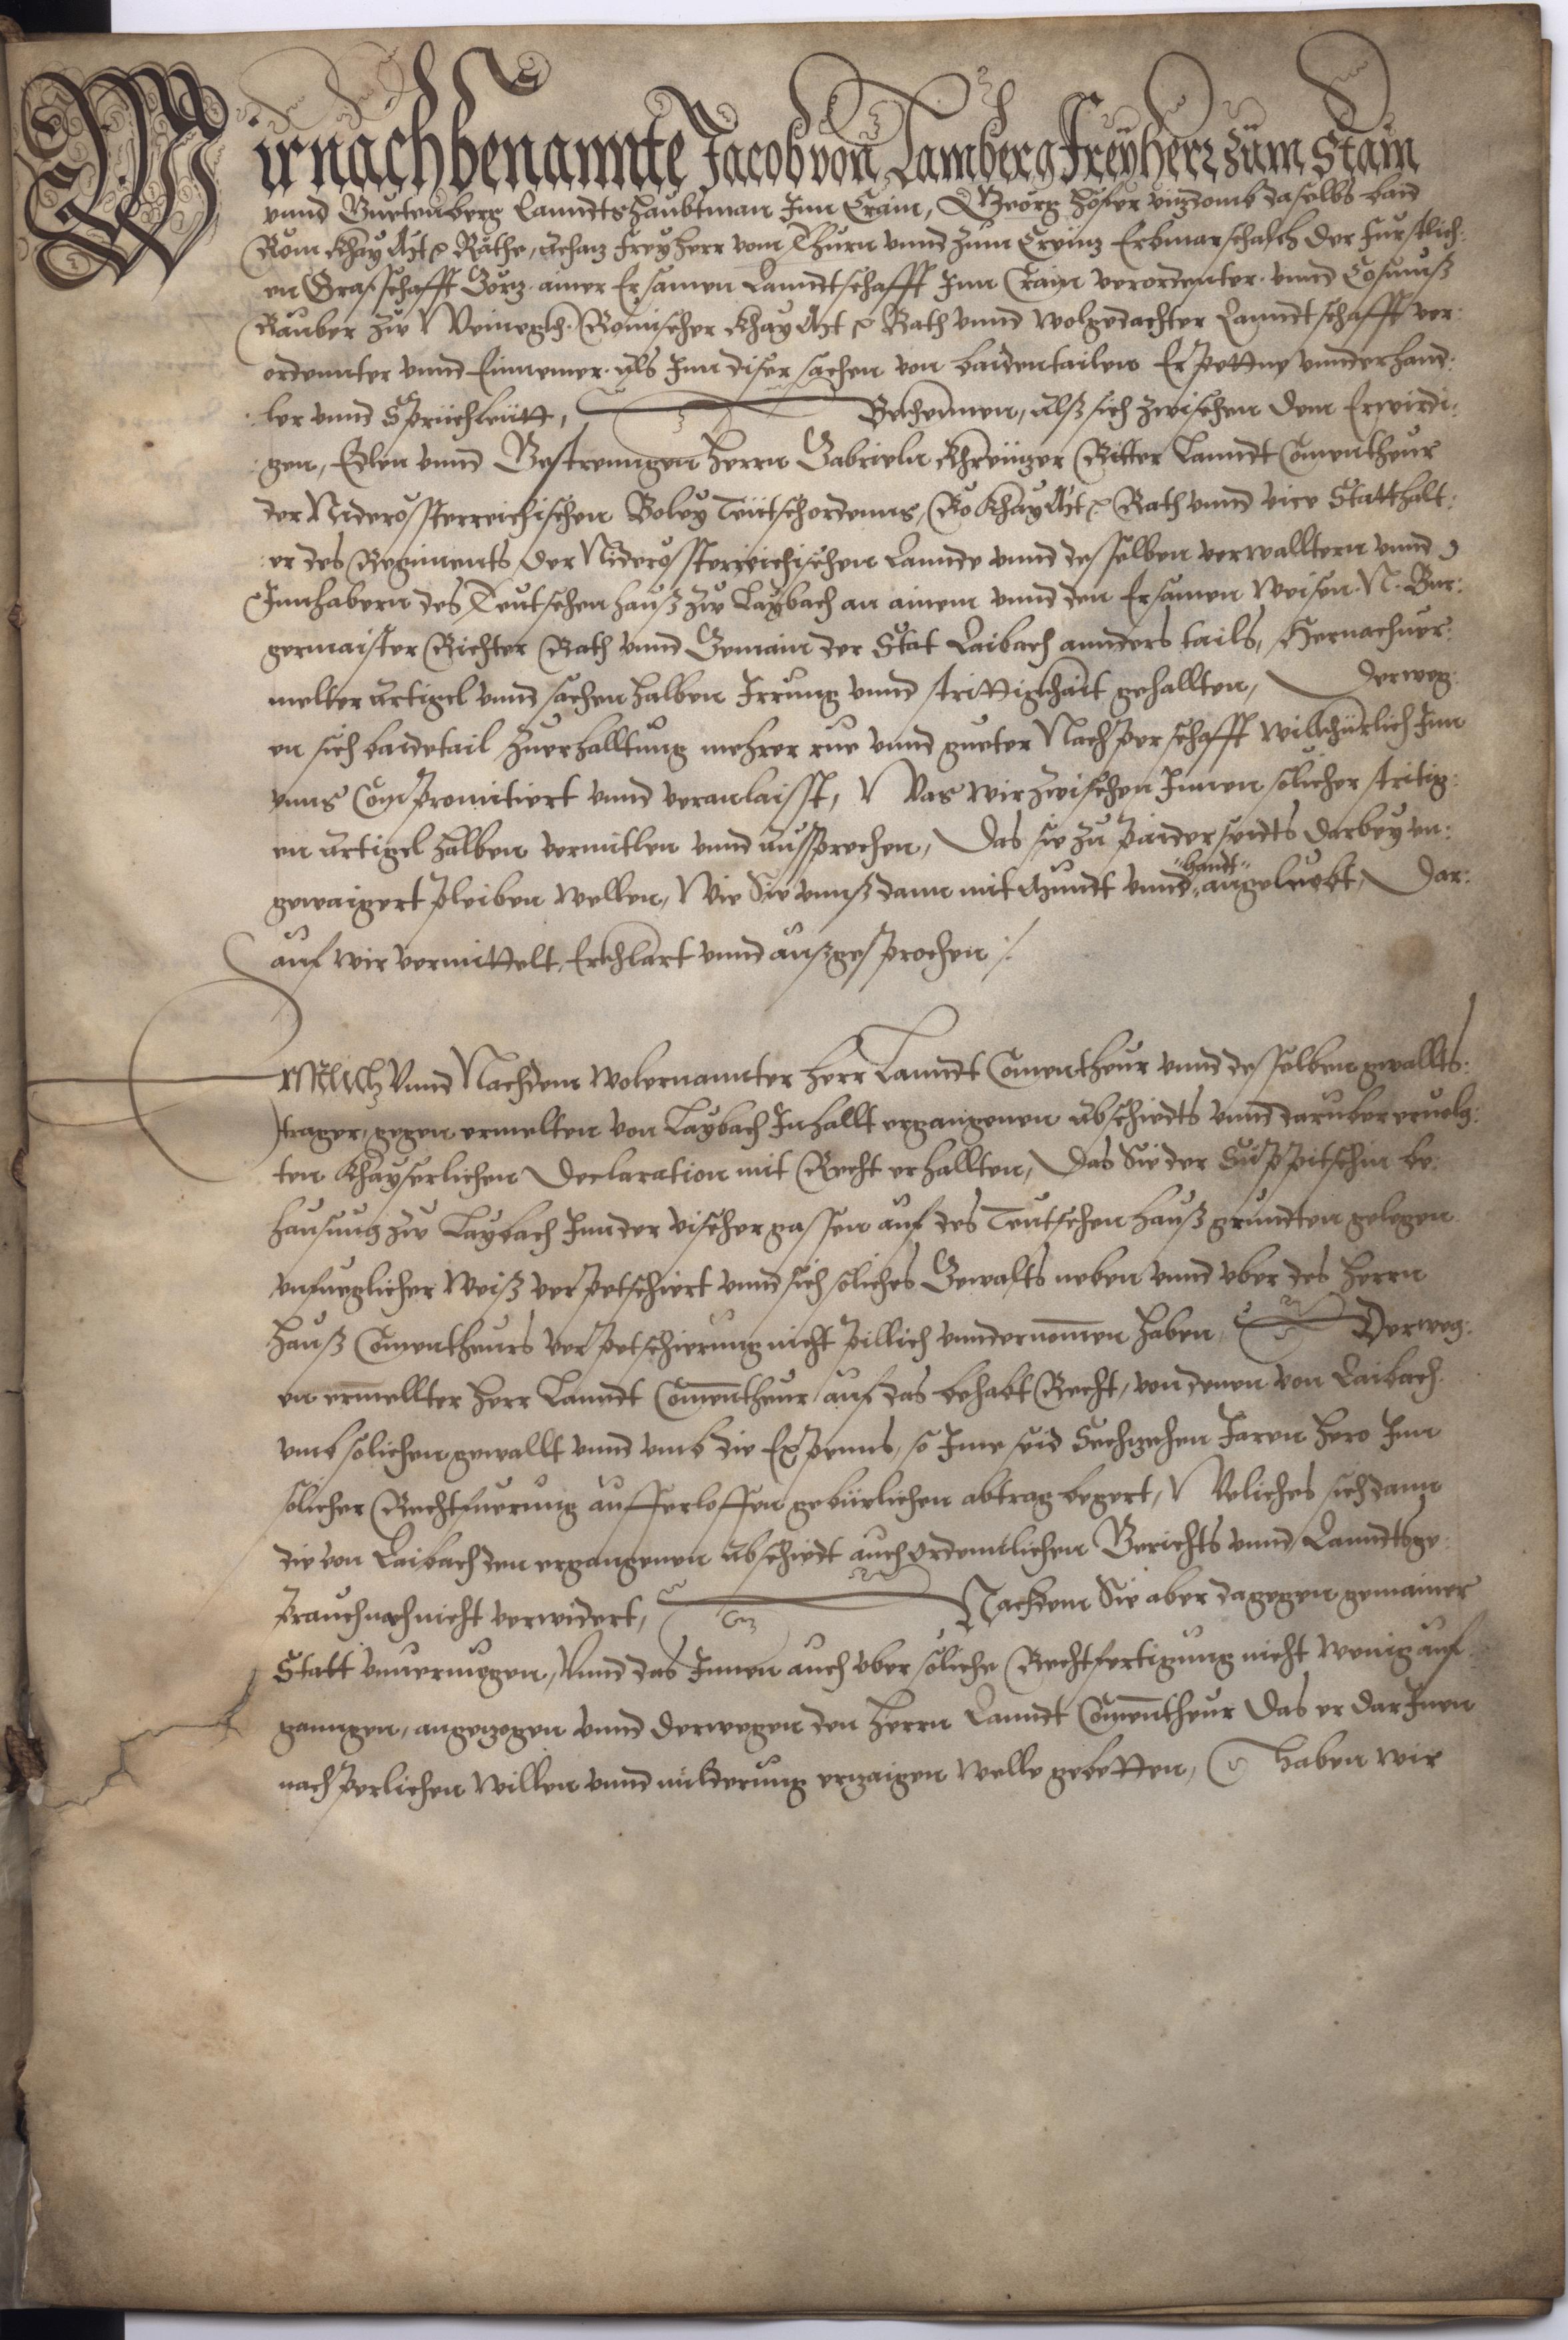 Wir nachbenannte Jacob von Lamberg Freyherr zum Stain
vnnd Guetenberg Lanndtshaubtman Inn Crain, Georg Höfer vizdomb daselbs baid
Röm Khay Mt ꝛc Räthe, Achaz Freyherr vom Thurn vnnd zum Creüz Erbmarschalch der Fürstlich:
en Grafschafft Görz. ainer Ersamen Lanndtschafft Inn Crain verordenter. vnnd Cosmuß
Rauber zu Weinegkh. Römischer Khay Mt ꝛc Rath vnnd wolgedachter Lanndtschafft ver:
ordennter vnnd Einnemer. als Inn diser sachen von baidentailen Erpettne vnnderhand:
ler vnnd Sprüchleütt, Bekhennen, Alß sich zwischen dem Erwirdi:
gen, Edlen vnnd Gestrenngen Herrn Gabrieln Khreüzer Ritter Lanndt Comentheur
der Niderössterreichischen Baley Teütschordenns, Rö Khay Mt ꝛc Rath vnnd vice Statthalt:
er des Regiments der Niderösterreichischen Lannde vnnd desselben verwalltern vnnd
Innhabern des Teutschen hauß zu Laybach an ainem vnnd den Ersamen Weisen. N. Bur:
germaister Richter Rath vnnd Gemain der Stat Laibach annders tails, Hernachuer:
melter Artigel vnnd sachen halben Irrung vnnd strittigkhait gehallten, Derweg:
en sich baidetail zuerhalltung mehrer rue vnnd gueter Nachperschafft willkhürlich Inn
vnns Compromitiert vnnd veranlaisst, Was wir zwischen Innen solicher stritig:
en Artigel halben vermitlen vnnd aussprechen, Das sie zu paiderseidts darbey vn:
gewaigert pleiben wellen, Wie Sie vnnß dann mit Mundt vnnd "handt" angeluebt, Dar:
auf wir vermittelt, Erkhlärt vnnd außgesprochen /.
Erstlich Vnnd Nachdem wolernannter Herr Lanndt Comentheur vnnd desselben gewallts:
trager, gegen ermelten von Laybach Inhallt ergangenen Abschiedts vnnd darüber eruolg:
ten Khayserlichen Declaration mit Recht erhallten, Das Sie der Suppitschin be:
hausung zu Laybach Inn der vischergassen auf des Teutschen hauß gründten gelegen
vnfueglicher Weiß verpetschiert vnnd sich soliches Gewalts neben vnnd vber des Herrn
Hauß Comentheurs verpetschierung nicht pillich vnndernomen haben, Derweg:
en ermellter Herr Lanndt Comentheur auf das behabt Recht, von denen von Laibach
vmb solichen gewallt vnnd vmb die Expenns, so Ime seid Sechzehen Jaren hero Inn
solicher Rechtfuerung aufferloffen gebürlichen abtrag begert, Weliches sich dann
die von Laibach den ergangenen Abschiedt auch Ordennlichen Gerichts vnnd Lanndtsge:
prauch nach nicht verwidert, Nachdem Sie aber dagegen gemainer
Statt vnuermögen, Vnnd das Innen auch vber soliche Rechtfertigung nicht wenig auf:
ganngen, angezogen vnnd derwegen den Herrn Lanndt Comentheur das er dar Inen
nachperlichen willen vnnd milderung erzaigen welle gebetten, Haben wir